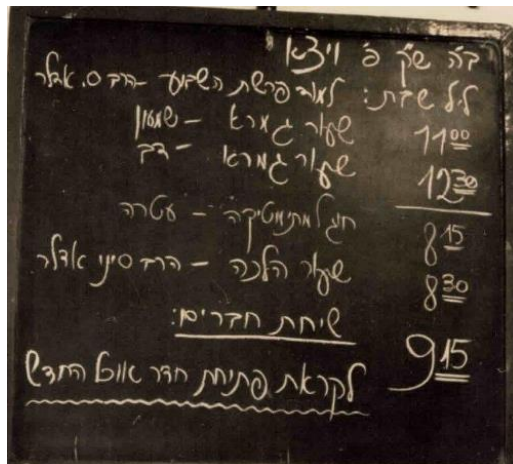 ב"ה ש"ק פ' ויצא
ליל שבת: למוד פרשת השבוע - הרב ס. אדלר
11⁰⁰ שעור גמרא - שמעון
12³⁰ שעור גמרא - דב
8¹⁵ חוג למתימטיקה - עטרה
8³⁰ שעור הלכה - הרב סיני אדלר
9¹⁵ שיחת חברים:
לקראת פתיחת חדר אוכל החדש